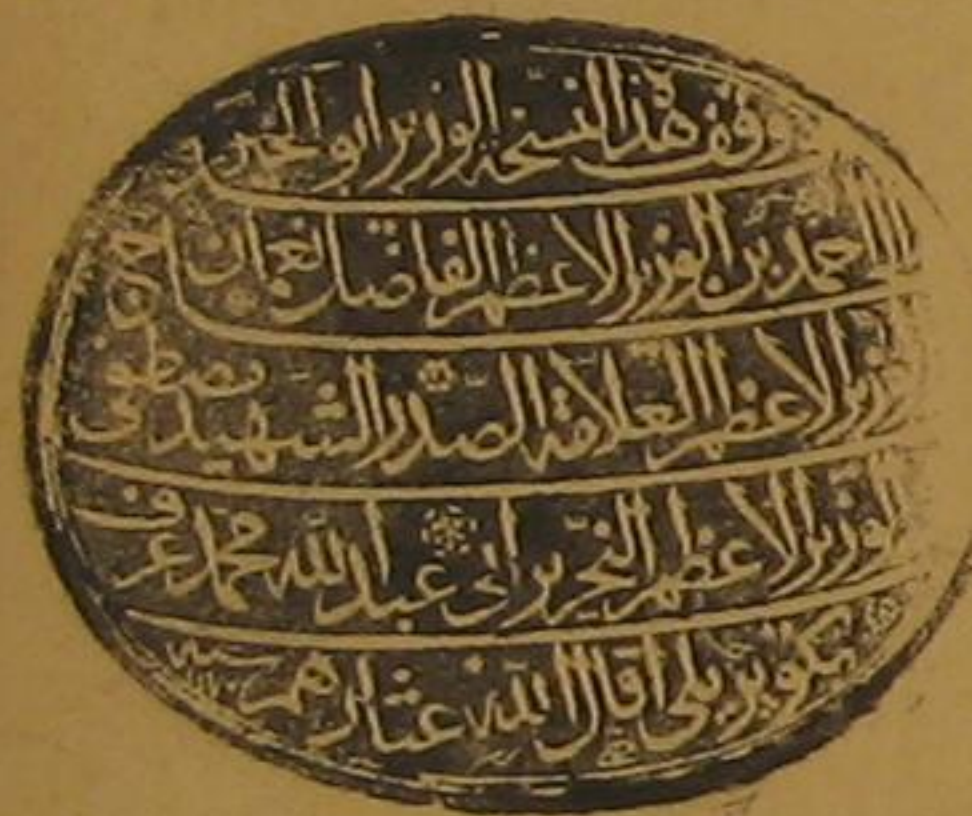 وقف هذا النسخة الوزير ابو الخير
احمد بن الوزير الاعظم الفاضل نعمان بن
الوزير الاعظم العلامة الصدر الشهيد مصطفى
الوزير الاعظم النحرير ابى عبد الله محمد عرف
بكوبريلى اقال الله عثارهم سنه